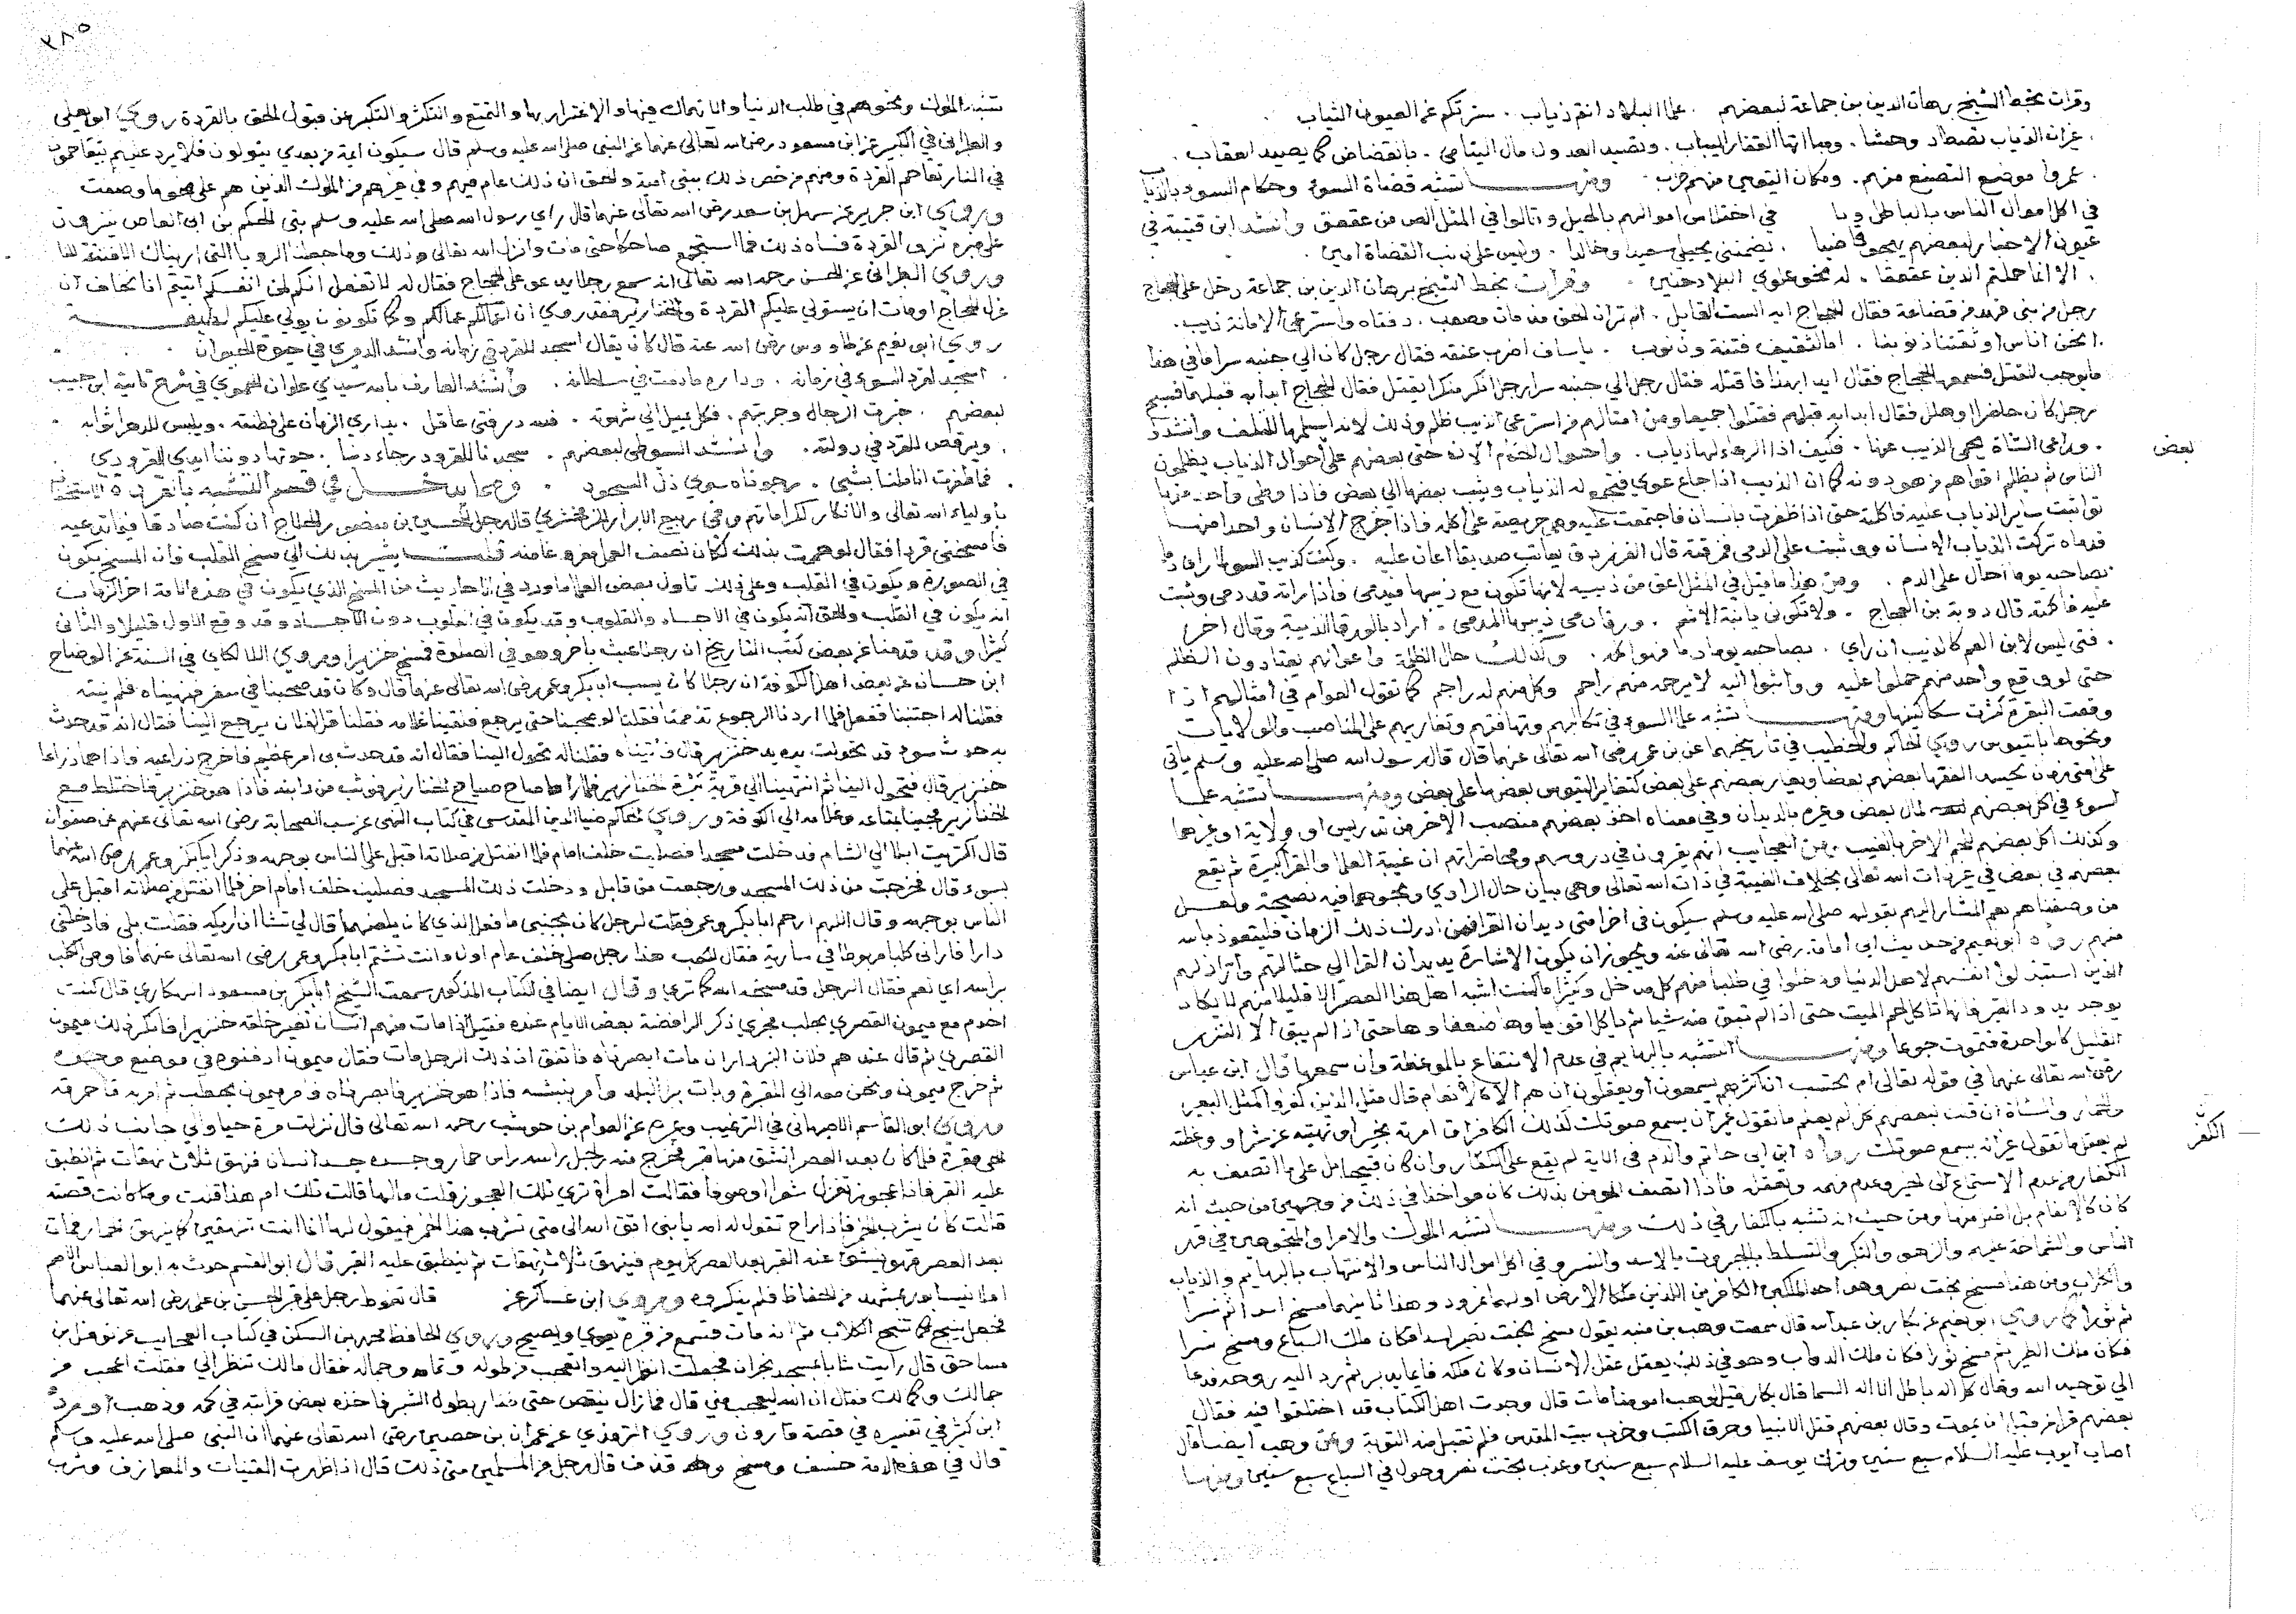 وقرات بخط الشيخ برهان الدين بن جماعة لبعضهم . علما البلاد انتم ذياب . ستر تكم عن العيون الثياب
غير ان الذياب تصطاد وحشا . ومن هنا القفار اليباب . وتصيد العدول مال اليتامى . بانقضاض كما يصيد العقاب .
. عمروا موضع التصنع منهم . ومكان التقى منهم خراب . ومنها تشبه قضاة السوء وحكام السوء بالذياب
في اكل اموال الناس بالباطل وبا في اختلاس اموالهم بالحيل وقالوا في المثل الص من عقعق وانشد ابن قتيبة في
عيون الاخبار لبعضهم يهجو قاضيا
. الا انما حملتم الدين عقعقا . له نحو علوي البلاد حنين . وقرات بخط الشيخ برهان الدين بن جماعة دخل على الحجاج
رجل من بني فهد من قضاعة فقال الحجاج ايه الست القايل . الم تر ان الحق مذ مات مصعب . دفناه واسترعى الامانة ذيب .
يا سياف اضرب عنقه فقال رجل كان الى جنبه سرا ما في هذا
ما يوجب القتل فسمعها الحجاج فقال ايه ابهذا فاقتله فقال رجل الى جنبه سرا رجل انكر منكرا يقتل فقال الحجاج
رجل كان حاضرا
. وراعى الشاة يحمي الذيب عنها . فكيف اذا الرعاء لها ذياب . واحوال الذياب يظلمون
لبعض
الناس ثم يظلم اقواهم من هو دونه كما ان الذيب اذا جاع عوى فتجتمع له الذياب ويثب بعضها الى بعض فاذا وطى واحد منها
وثبت ساير الذياب عليه فاكلته حتى اذا ظفرت بانسان فاجتمعت عليه وهي حريصة على اكله فاذا جرح الانسان واحدا منها
فدماه تركت الذياب الانسان ووثبت على الدمى فمزقته قال الفرزدق يعاتب صديقا اعان عليه . وكنت كذيب السوء لما راى دما
. بصاحبه يوما احال على الدم . ومن هذا ما قيل في المثل اعق من ذيبة لانها تكون مع ذيبها فيدمى فاذا راته قد دمى وثبت
عليه فاكلته قال روبة بن العجاج . ولا تكوني يا بنة الاشم . ورقا دمى ذيبها المدمى . اراد بالورقا الذيبة وقال اخر
. فتى ليس لابن العم كالذيب ان راى . بصاحبه يوما دما فهو اكله . وكذلك حال الظلمة واعوانهم يعتادون الظلم
حتى لو وقع واحد منهم حملوا عليه ووثبوا اليه لا يرحمه منهم راحم وكل منهم له راجم كما تقول العوام في امثالهم اذا
وقعت البقرة كثرت سكاكينها ومنها تشبه علما السوء في تكالبهم وتهافتهم وتغايرهم على المناصب والولايات
ونحوها بالتيوس روى الحاكم والخطيب في تاريخهما عن بن عمر رضي الله تعالى عنهما قال قال رسول الله صلى الله عليه وسلم ياتي
على امتى زمان يحسد الفقها بعضهم بعضا ويغار بعضهم على بعض كتغاير التيوس بعضها على بعض ومنها تشبه علما
السوء في اكل بعضهم مال بعض وغيره بالديدان وفي معناه اخذ بعضهم منصب الاخر من تدريس او ولاية او غيرها
وكذلك اكل بعضهم لحم الاخر بالغيب ومن العجايب انهم يقررون في دروسهم ومحاضراتهم ان غيبة العلما والقرا كبيرة ثم يقع
بعضهم في بعض في غير ذات الله تعالى بخلاف الغيبة في ذات الله تعالى وهي بيان حال الراوي ونحوهما فيه نصيحة ولعل
من وصفناهم هم المشار اليهم بقوله صلى الله عليه وسلم سيكون في اخر امتي ديدان القرا فمن ادرك ذلك الزمان فليتعوذ بالله
منهم رواه ابو نعيم من حديث ابي امامة رضي الله تعالى عنه ويجوز ان يكون الاشارة بديدان القرا الى حثالتهم واراذلهم
الذين استبذلوا انفسهم لاهل الدنيا ودخلوا في طلبها منهم كل مدخل وكثيرا ما كنت اشبه اهل هذا العصر الا قليلا منهم لا يكاد
يوجد بدود القبر فانها تاكل لحم الميت حتى اذا لم تبق منه شيا ثم ياكل اقوياوها ضعفاوها حتى اذا لم يبق الا النزر
القليل كلوا واحدة فتموت جوعا ومنها التشبه بالبهايم في عدم الانتفاع بالموعظة وان سمعها قال ابن عباس
رضي الله تعالى عنهما في قوله تعالى ام تحسب ان اكثرهم يسمعون او يعقلون ان هم الا كالانعام قال مثل الذين كفروا كمثل البعير
والحمار والشاة ان قلت لبعضهم كل لم يعلم ما تقول غير ان يسمع صوتك كذلك الكافر ان امرته بخير او نهيته عن شر او وعظته
لم يعقل ما تقول غير انه يسمع صوتك رواه ابن ابي حاتم والذم في الاية لم يقع على الكفار وان كان قبيحا بل على ما اتصف به
الكفار من عدم الاستماع الى الخير وعدم فهمه وتعقله فاذا اتصف المومن بذلك كان مواخذا في ذلك من وجهين من حيث انه
كان كالانعام بل اضل منها ومن حيث انه تشبه بالكفار في ذلك ومنها تشبه الملوك والامرا ونحوهم في قهر
الكفر
الناس والشماخة عليهم والزهو والتكبر والتسلط بالجبروت بالاسد والنسر وفي اكل اموال الناس والانتهاب بالبهايم والذياب
والكلاب ومن هذا مسخ بخت نصر وهو احد الملكين الكافرين اللذين ملكا الارض اولهما نمرود وهذا ثانيهما مسخ اسدا ثم نسرا
ثم ثورا كما روى ابو نعيم عن بكار بن عبد الله قال سمعت وهب بن منبه يقول مسخ بخت نصر اسدا فكان ملك السباع ومسخ نسرا
فكان ملك الطير ثم مسخ ثورا فكان ملك الدواب وهو في ذلك يعقل عقل الانسان وكان ملكه قايما يدبر ثم رد اليه روحه فدعا
الى توحيد الله وقال كل اله باطل الا اله السما قال بكار فقيل لوهب امومنا مات قال وجدت اهل الكتاب قد اختلفوا فيه فقال
بعضهم امن قبل ان يموت وقال بعضهم قتل الانبيا وحرق الكتب وخرب بيت المقدس فلم تقبل منه التوبة وعن وهب ايضا قال
اصاب ايوب عليه السلام سبع سنين وترك يوسف عليه السلام سبع سنين وعذب بخت نصر وحول في السباع سبع سنين ومنها
٣٨٥
تشبه الملوك ونحوهم في طلب الدنيا والانهماك فيها والاغترار بها والتمتع والتكثر والتكبر عن قبول الحق بالقردة روى ابو يعلى
والطبراني في الكبير عن ابن مسعود رضي الله تعالى عنهما عن النبي صلى الله عليه وسلم قال سيكون ايمة من بعدي يقولون فلا يرد عليهم يتقاحمون
في النار تقاحم القردة ومنهم من خص ذلك ببني امية والحق ان ذلك عام فيهم وفي غيرهم من الملوك الذين هم على نحو ما وصفت
وروى ابن جرير عن سهل بن سعد رضي الله تعالى عنهما قال راى رسول الله صلى الله عليه وسلم بني الحكم بن ابي العاص ينزون
على منبره نزو القردة فساه ذلك فما استجمع ضاحكا حتى مات وانزل الله تعالى في ذلك وما جعلنا الرويا التي اريناك الا فتنة للناس
وروى الطبراني عن الحسن رحمه الله تعالى انه سمع رجلا يدعو على الحجاج فقال له لا تفعل انكم من انفسكم اتيتم انا نخاف ان
عزل الحجاج او مات ان يستولي عليكم القردة والخنازير فقد روي ان اعمالكم عمالكم وكما تكونون يولى عليكم لطيفة
روى ابو نعيم عن طاووس رضي الله عنه قال كان يقال اسجد للقرد في زمانه وانشد الدميري في حيوة الحيوان
. اسجد لقرد السوء في زمانه . وداره ما دمت في سلطانه . وانشد العارف بالله سيدي علوان الحموي في شرح تايية ابن حبيب
لبعضهم . خبرت الرجال وجربتهم . فكل يميل الى شهوته . فلله در فتى عاقل . يداري الزمان على فطنته . ويلبس للدهر اثوابه .
. ويرقص للقرد في دولته . وانشد السيوطي لبعضهم . سجدنا للقرود رجاء دنيا . حوتها دوننا ايدي القرود
. فما ظفرت اناملنا بشيى . رجوناه سوى ذل السجود . ومما يدخل في قسم التشبه بالقردة الاستهزا
باولياء الله تعالى والانكار لكراماتهم وفي ربيع الابرار للزمخشري قال رجل للحسين بن منصور الحلاج ان كنت صادقا فيما تدعيه
فامسخني قردا فقال لو هممت بذلك لكان نصف العمل مفروغا منه قلت يشير بذلك الى مسخ القلب فان المسخ يكون
في الصورة ويكون في القلب وعلى ذلك تاول بعض العلما ما ورد في الاحاديث من المسخ الذي يكون في هذه الامة اخر الزمان
انه يكون في القلب والحق انه يكون في الاجساد والقلوب وقد يكون في القلوب دون الاجساد وقد وقع الاول قليلا والثاني
كثيرا وقد قدمنا عن بعض كتب التاريخ ان رجلا عبث باخر وهو في الصلوة فمسخ خنزيرا وروى اللالكاي في السنة عن الوضاح
ابن حسان عن بعض اهل الكوفة ان رجلا كان يسب ابا بكر وعمر رضي الله تعالى عنهما قال وكان قد صحبنا في سفر فنهيناه فلم ينته
فقلنا له اجتنبنا ففعل فلما اردنا الرجوع تذممنا فقلنا لو صحبنا حتى يرجع فلقينا غلامه فقلنا قل لفلان يرجع الينا فقال انه قد حدث
به حدث سوء قد تحولت يده يد خنزير قال فاتيناه فقلنا له تحول الينا فقال انه قد حدث بي امر عظيم فاخرج ذراعيه فاذا هما ذراعا
خنزير قال فتحول الينا ثم انتهينا الى قرية كثيرة الخنازير فلما راها صاح صياح الخنازير فوثب من دابته فاذا هو خنزير فاختلط مع
الخنازير فجينا بمتاعه وغلامه الى الكوفة وروى الحاكم ضيا الدين المقدسي في كتاب النهي عن سب الصحابة رضي الله تعالى عنهم عن صفوان
قال اكتريت ابلا الى الشام فدخلت مسجدا فصليت خلف امام فلما انفتل من صلاته اقبل على الناس بوجهه وذكر ابا بكر وعمر رضي الله عنهما
بسوء قال فخرجت من ذلك المسجد ورجعت من قابل ودخلت ذلك المسجد فصليت خلف امام اخر فلما انفتل من صلاته اقبل على
الناس بوجهه وقال اللهم ارحم ابا بكر وعمر فقلت لرجل كان بجنبي ما فعل الذي كان يلعنهما قال لي تشا ان اريكه فقلت بلى فادخلني
دارا فاراني كلبا مربوطا في سارية فقال للكلب هذا رجل صلى خلفك عام اول وانت تشتم ابا بكر وعمر رضي الله تعالى عنهما فاومى الكلب
براسه اي نعم فقال الرجل قد مسخه الله كما ترى وقال ايضا في الكتاب المذكور سمعت الشيخ ابا بكر بن مسعود الهكاري قال كنت
اخدم مع ميمون القصري بحلب فجرى ذكر الرافضة بعض الايام عنده فقيل اذا مات منهم انسان تغير خلقه خنزيرا فانكر ذلك ميمون
القصري ثم قال عندهم فلان البزدار ان مات ابصرناه فاتفق ان ذلك الرجل مات فقال ميمون ادفنوه في موضع وحده
ثم خرج ميمون ونحن معه الى المقبرة وبات برا البلد وامر بنبشه فاذا هو خنزير فابصرناه وامر ميمون بحطب ثم امر به فاحرقه
وروى ابو القاسم الاصبهاني في الترغيب وغيره عن العوام بن حوشب رحمه الله تعالى قال نزلت مرة حيا والى جانب ذلك
الحي مقبرة فلما كان بعد العصر انشق منها قبر فخرج منه رجل راسه راس حمار وجسده جسد انسان فنهق ثلاث نهقات ثم انطبق
عليه القبر فاذا عجوز تغزل شعرا او صوفا فقالت امراة ترى تلك العجوز قلت ما لها قالت تلك ام هذا قلت وما كانت قصته
قالت كان يشرب الخمر فاذا راح تقول له امه يا بني اتق الله الى متى تشرب هذا الخمر فيقول لها انما انت تنهقين كما ينهق الحمار فمات
بعد العصر فهو ينشق عنه القبر بعد العصر كل يوم فينهق ثلاث نهقات ثم ينطبق عليه القبر قال ابو القسم حدث به ابو العباس الاصم
املا بنيسابور بمشهد من الحفاظ فلم ينكروه وروى ابن عساكر عن قال تغوط رجل على قبر الحسن بن علي رضي الله تعالى عنهما
فجعل ينبح كما تنبح الكلاب ثم انه مات فسمع من قبره يعوي ويصيح وروى الحافظ محمد بن السكن في كتاب العجايب عن نوفل بن
مساحق قال رايت شابا بمسجد نجران فجعلت انظر اليه واتعجب من طوله وتمامه وجماله فقال مالك تنظر الي فقلت اعجب من
جمالك وكمالك فقال ان الله ليعجب مني قال فما زال ينقص حتى صار بطول الشبر فاخذه بعض قرابته في كمه وذهب اورده
ابن كثير في تفسيره في قصة قارون وروى الترمذي عن عمران بن حصين رضي الله تعالى عنهما ان النبي صلى الله عليه وسلم
قال في هذه الامة خسف ومسخ وقذف قال رجل من المسلمين متى ذلك قال اذا ظهرت القينات والمعازف وشرب